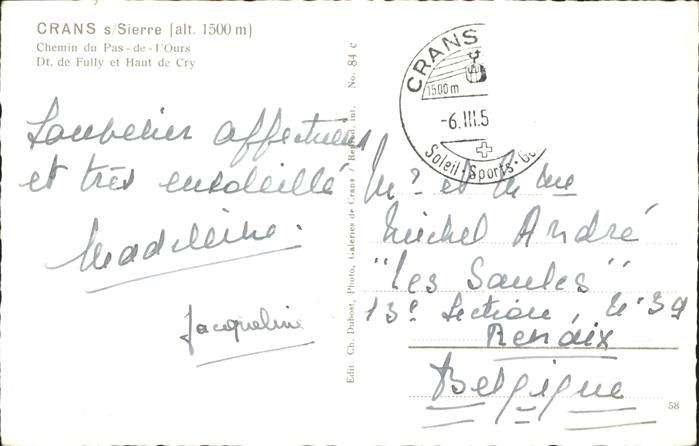 CRANS s/Sierre (alt. 1500 m)
Chemin du Pas-de-l'Ours
Dt. de Fully et Haut de Cry
No. 84 c
Edit. Ch. Dubost, Photo, Galeries de Crans / Reprod. int.
CRANS
1500 m
-6.III.5
Soleil·Sports·Go
affectueux
et très ensoleillé
Madeleine.
Jacqueline
Mr et Mme
Michel André
"Les Saules"
13e Section, No 39
Renaix
Belgique
58